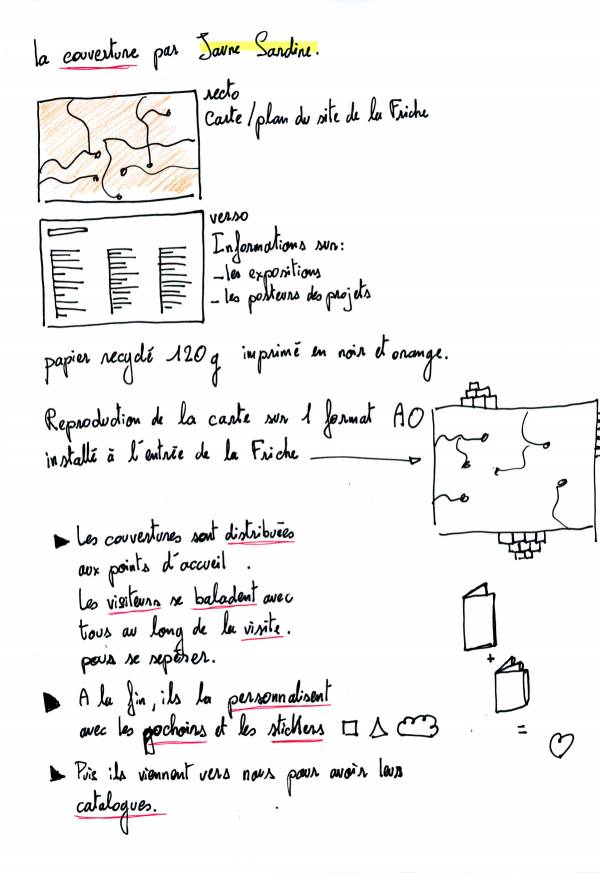 la couverture par Jaune Sardine.
recto
Carte/plan du site de la Friche
verso
Informations sur:
- les expositions
- les porteurs des projets
papier recyclé 120g imprimé en noir et orange.
Reproduction de la carte sur 1 format A0
installé à l'entrée de la Friche
Les couvertures sont distribuées
aux points d'accueil .
Les visiteurs se baladent avec
tous au long de la visite.
pour se repérer.
A la fin, ils la personnalisent
avec les pochoirs et les stickers
+
=
Puis ils viennent vers nous pour avoir leurs
catalogues.